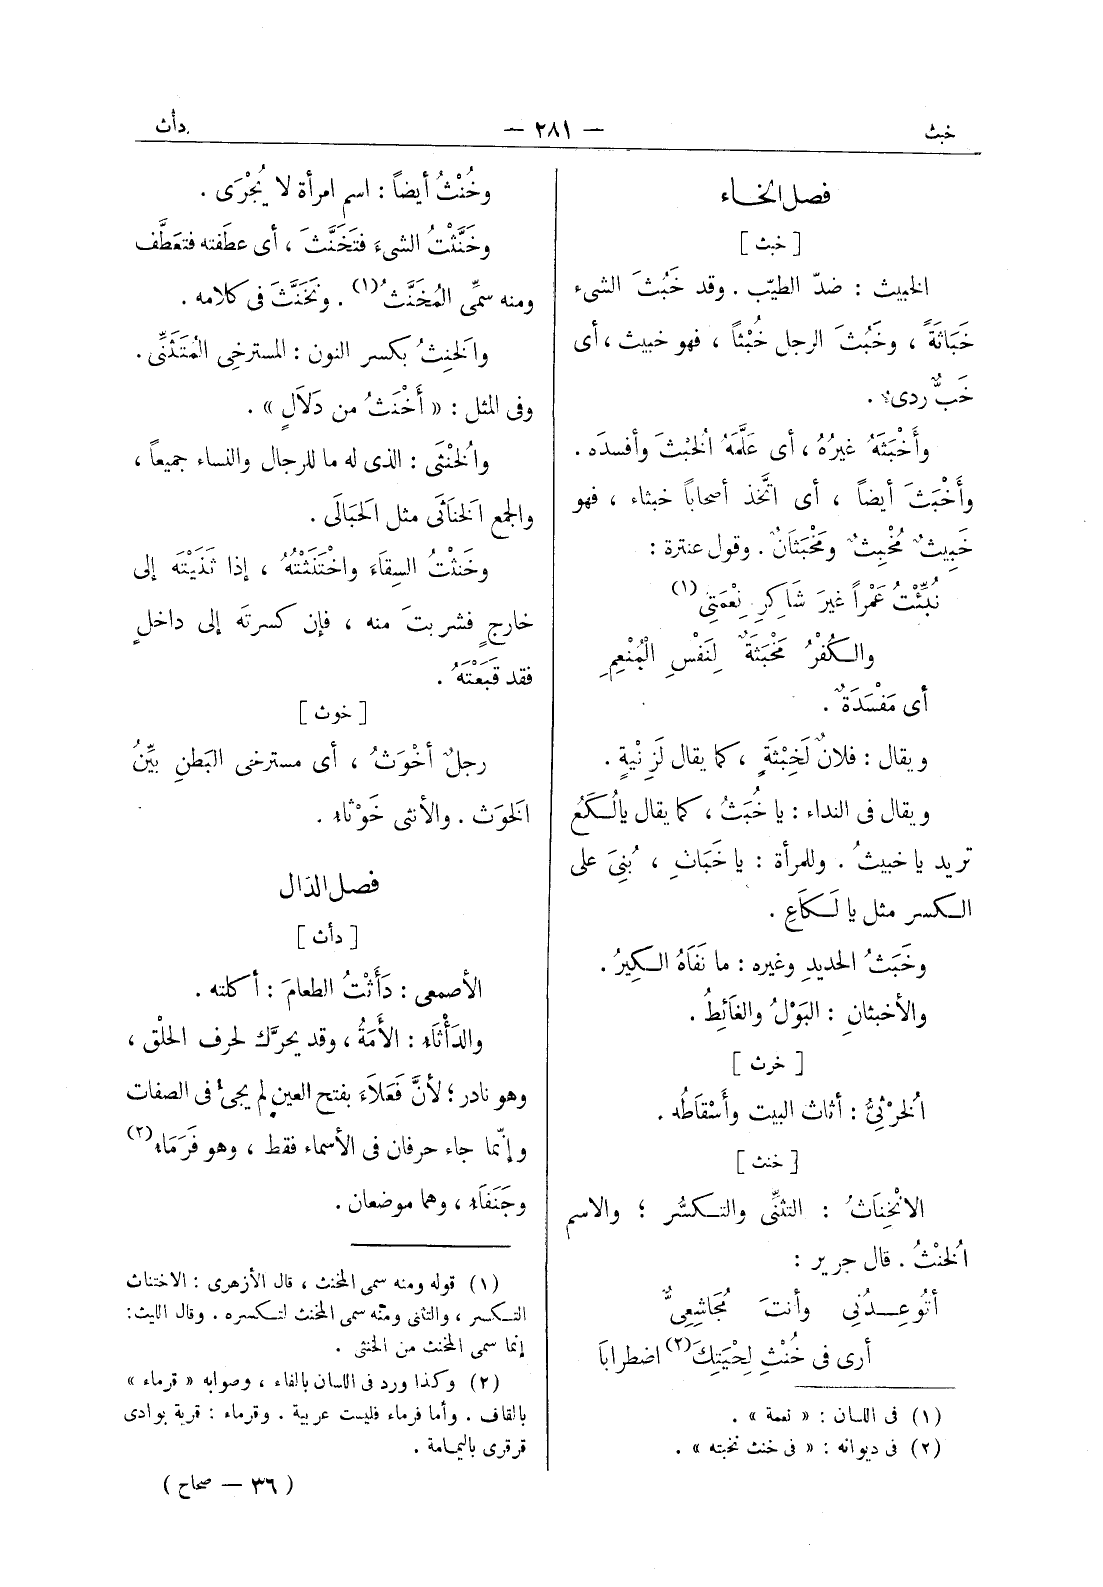 خبث
— ٢٨١ —
دأث
فصل الخاء
[ خبث ]
الخبيث : ضدّ الطيّب . وقد خَبُثَ الشىء
خَبَاثَةً ، وخَبُثَ الرجل خُبْثاً ، فهو خبيث ، أى
خَبٌّ ردىء .
وأَخْبَثَهُ غيرُهُ ، أى عَلَّمَهُ الُخبْثَ وأفسدَه .
وأَخْبَثَ أيضاً ، أى اتَّخذ أصحاباً خبثاء ، فهو
خَبِيثٌ مُخْبِثٌ ومَخْبَثَانٌ . وقول عنترة :
نُبِّئْتُ عَمْراً غيرَ شَاكِرِ نِعْمَتِى (١)
والكُفْرُ مَخْبَثَةٌ لِنَفْسِ الْمُنْعِمِ
أى مَفْسَدَةٌ .
ويقال : فلانٌ لَخِبْثَةٍ ، كما يقال لَزِنْيةٍ .
ويقال فى النداء : يا خُبَثُ ، كما يقال يالُكَعُ
تريد يا خبيثُ . وللمرأة : يا خَبَاثِ ، بُنِىَ على
الكسر مثل يا لَكَاعِ .
وخَبَثُ الحديدِ وغيره : ما نَفَاهُ الكِيرُ .
والأخبثانِ : البَوْلُ والغَائِطُ .
[ خرث ]
الُخرْثِىُّ : أثاث البيت وأَسْقَاطُه .
[ خنث ]
الانْخِنَاثُ : التثنِّى والتكسُّر ؛ والاسم
الُخنْثُ . قال جرير :
أتُوعِدُنِى وأنتَ مُجَاشِعِىٌّ
أرى فى خُنْثِ لِحْيَتِكَ (٢) اضطرابَا
(١) فى اللسان : « نعمة » .
(٢) فى ديوانه : « فى خنث نخبته » .
وخُنْثُ أيضاً : اسم امرأة لا يُجْرَى .
وخَنَّثْتُ الشىءَ فتَخَنَّثَ ، أى عطَفته فتعَطَّف
ومنه سمِّى المُخَنَّثُ (١) . وتَخَنَّثَ فى كلامه .
والَخنِثُ بكسر النون : المسترخِى الْمُتَثَنِّى .
وفى المثل : « أَخْنَثُ من دَلَالٍ » .
والُخنْثَى : الذى له ما للرجال والنساء جميعاً ،
والجمع الَخنَاثَى مثل الَحبَالَى .
وخَنَثْتُ السِقَاءَ واخْتَنَثْتُهُ ، إذا ثَنَيْتَه إلى
خارجٍ فشربتَ منه ، فإن كسرتَه إلى داخلٍ
فقد قَبَعْتَهُ .
[ خوث ]
رجلٌ أَخْوَثُ ، أى مسترخى البَطنِ بَيِّنُ
الَخوَث . والأنثى خَوْثَاء .
فصل الدال
[ دأث ]
الأصمعى : دَأَثْتُ الطعامَ : أكلته .
والدَأْثَاء : الأَمَةُ ، وقد يحرَّك لحرف الحلْق ،
وهو نادر ؛ لأنَّ فَعَلَاءَ بفتح العين لم يجئْ فى الصفات
وإنّما جاء حرفان فى الأسماء فقط ، وهو فَرَمَاء (٢)
وجَنَفَاء ، وهما موضعان .
(١) قوله ومنه سمى المخنث ، قال الأزهرى : الاختناث
التكسر ، والتثنى ومنه سمى المخنث لتكسره . وقال الليث :
إنما سمى المخنث من الخنثى .
(٢) وكذا ورد فى اللسان بالفاء ، وصوابه « قرماء »
بالقاف . وأما فرماء فليست عربية . وقرماء : قرية بوادى
قرقرى باليمامة .
( ٣٦ — صحاح )